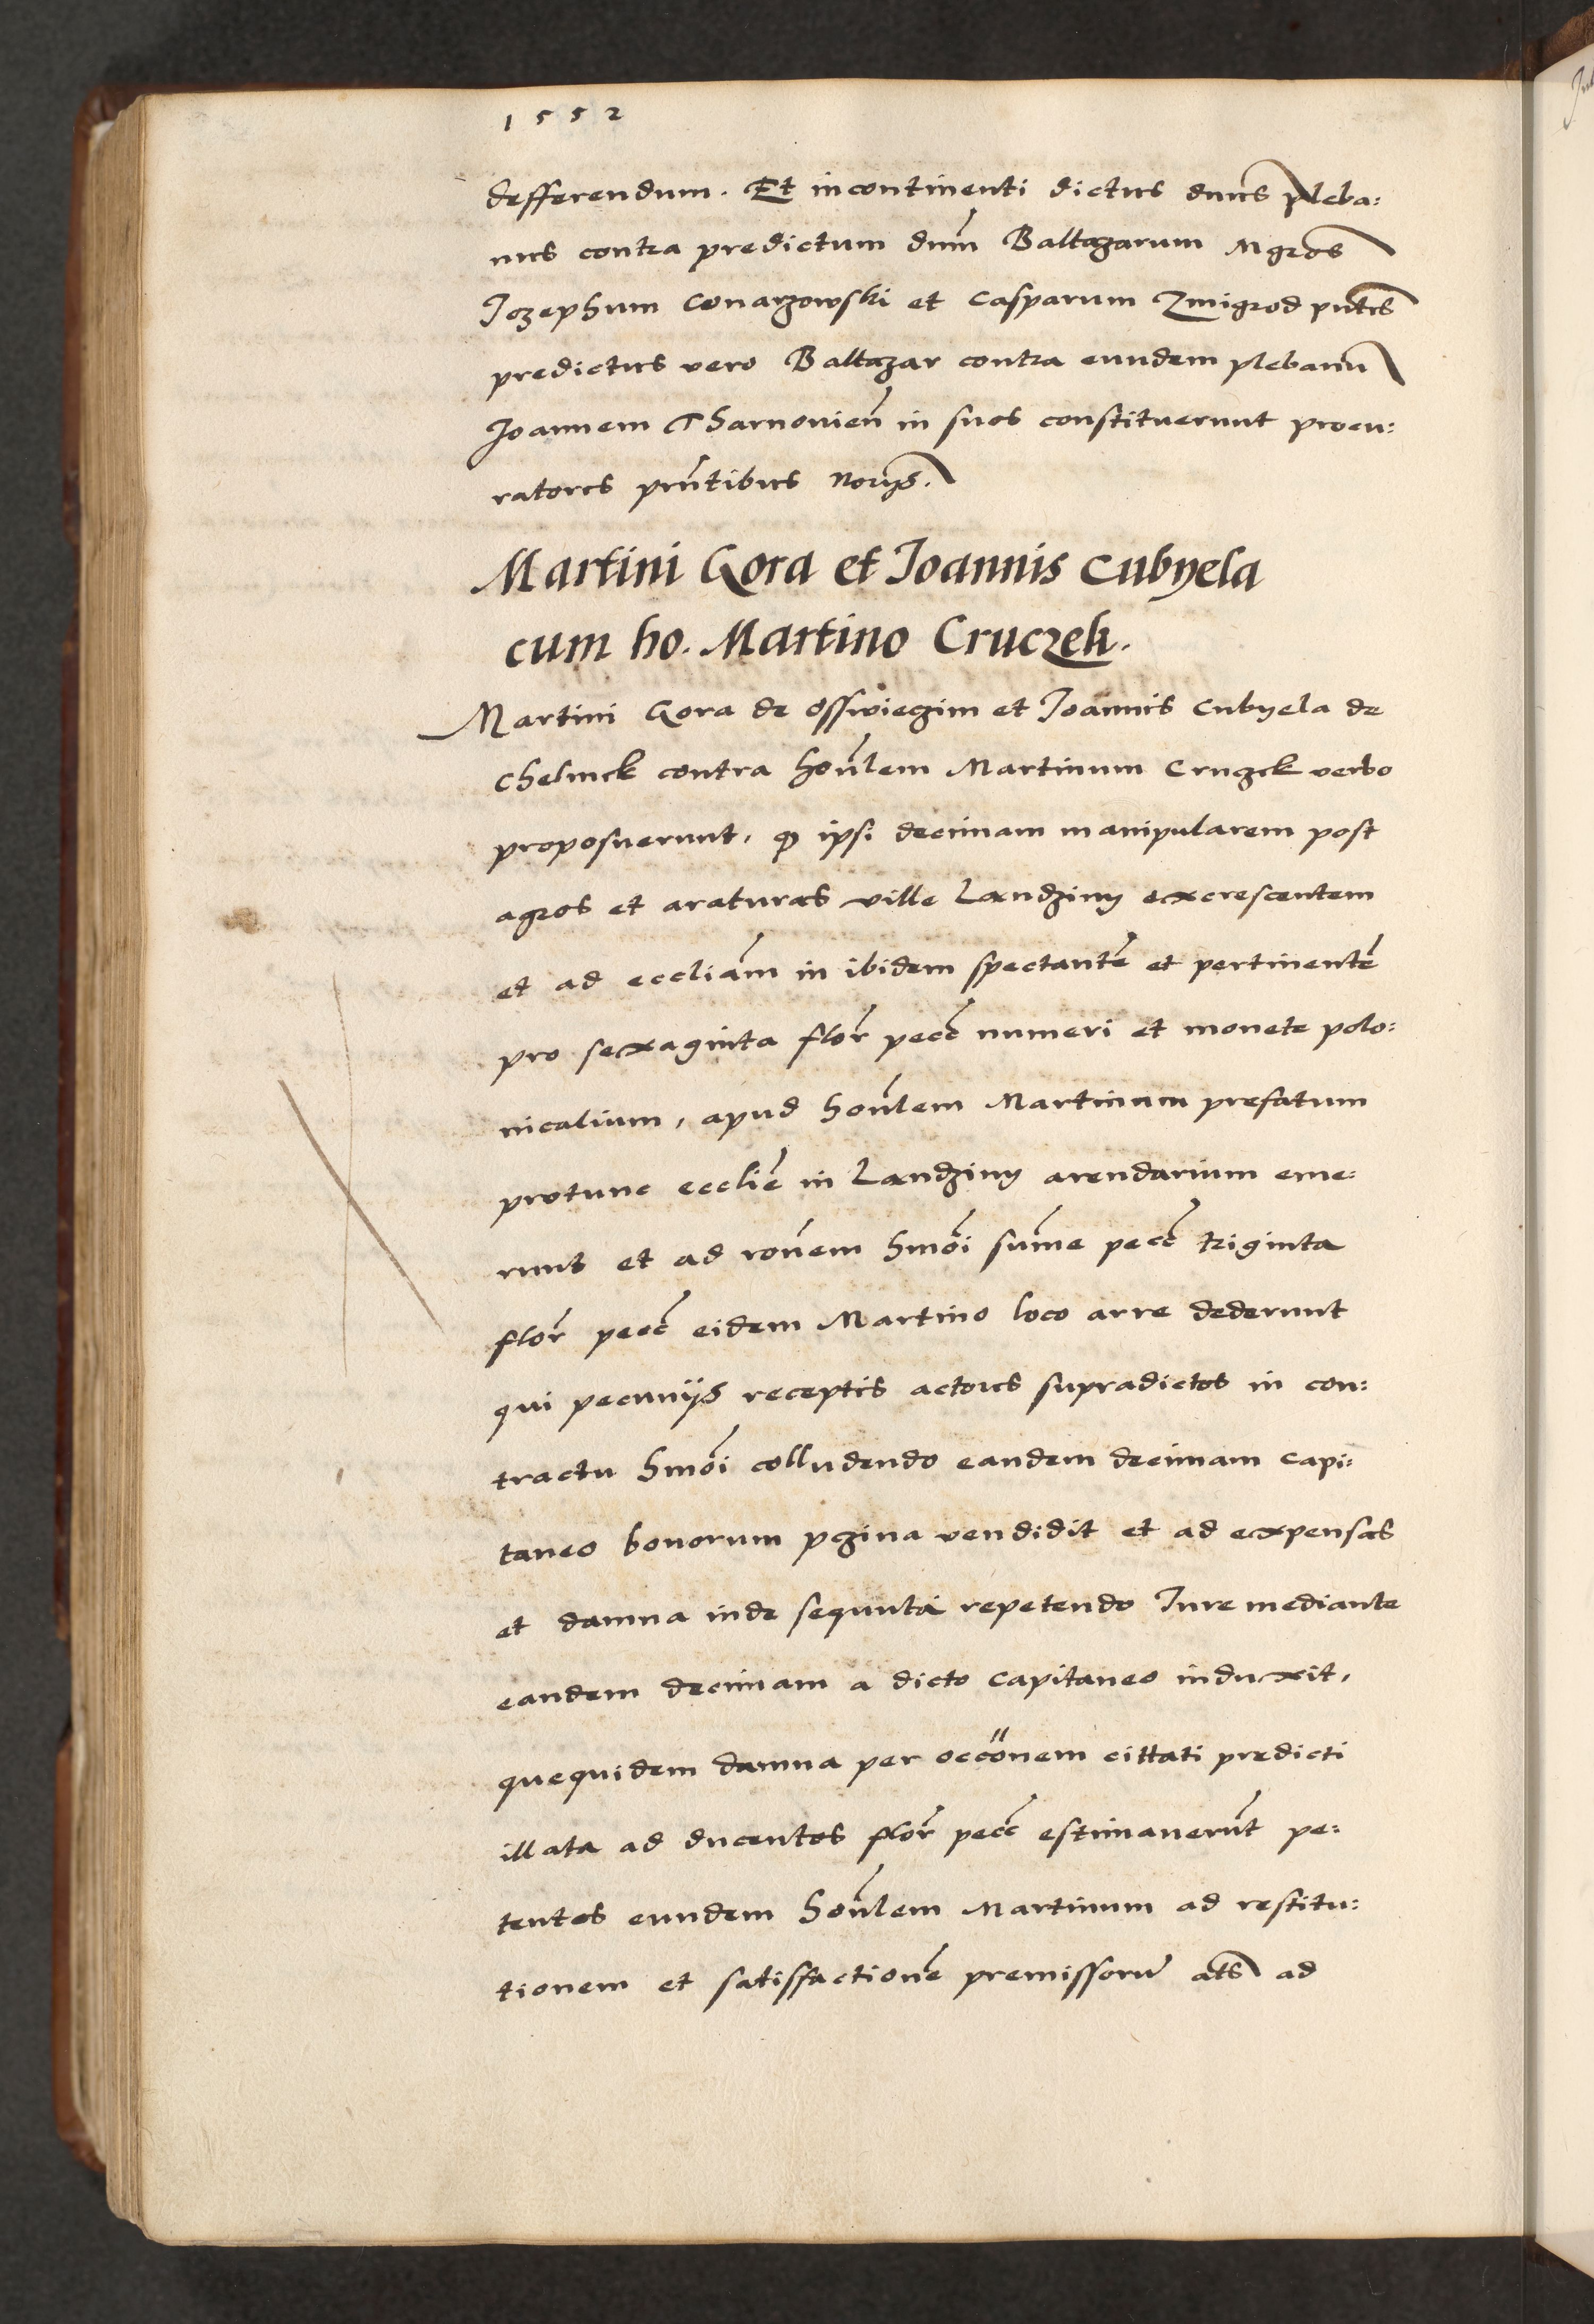 1552
defferendum. Et incontinenti dictus dnus pleba:
nus contra predictum dnm Baltazarum Mgros
Jozephum Conarzowski et Casparum Zmigrod pntes
predictus vero Baltazar contra eundem plebanu
Joannem Tharnovien in suos constituerunt procu:
ratores pntibus Norijs.
Martini Gora et Joannis Cubyela
cum ho. Martino Cruczek.
Martini Gora de Osswiezim et Joannis Cubyela de
Chelmck contra honlem Martinum Cruczek verbo
proposuerunt, q ipsi decimam manipularem post
agros et araturas ville Landziny excrescentem
et ad eccliam in ibidem spectante et pertinente
pro sexaginta flor pecc numeri et monete polo:
nicalium, apud honlem Martinum prefatum
protunc ecclie in Landziny arendarium eme:
runt et ad ronem hmoi sume pecc triginta
flor pecc eidem Martino loco arre dederunt
qui pecunijs receptis actores supradictos in con:
tractu hmoi colludendo eandem decimam Capi:
taneo bonorum pzina vendidit et ad expensas
et damna inde sequuta repetendo Jure mediante
eandem decimam a dicto Capitaneo induxit,
quequidem damna per occonem cittati predicti
illata ad ducentos flor pecc estimaverunt pe:
tentes eundem honlem Martinum ad restitu:
tionem et satisfactione premissoru ats ad